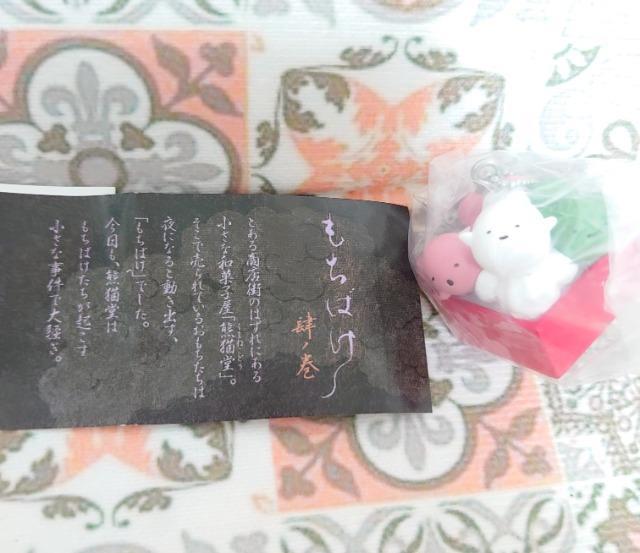 もちばけ〜
肆ノ巻
とある商店街のはずれにある
小さな和菓子屋「熊猫堂」。
そこで売られているおもちたちは
夜になると動き出す、
「もちばけ」でした。
今日も、熊猫堂は
もちばけたちが起こす
小さな事件で大騒ぎ。